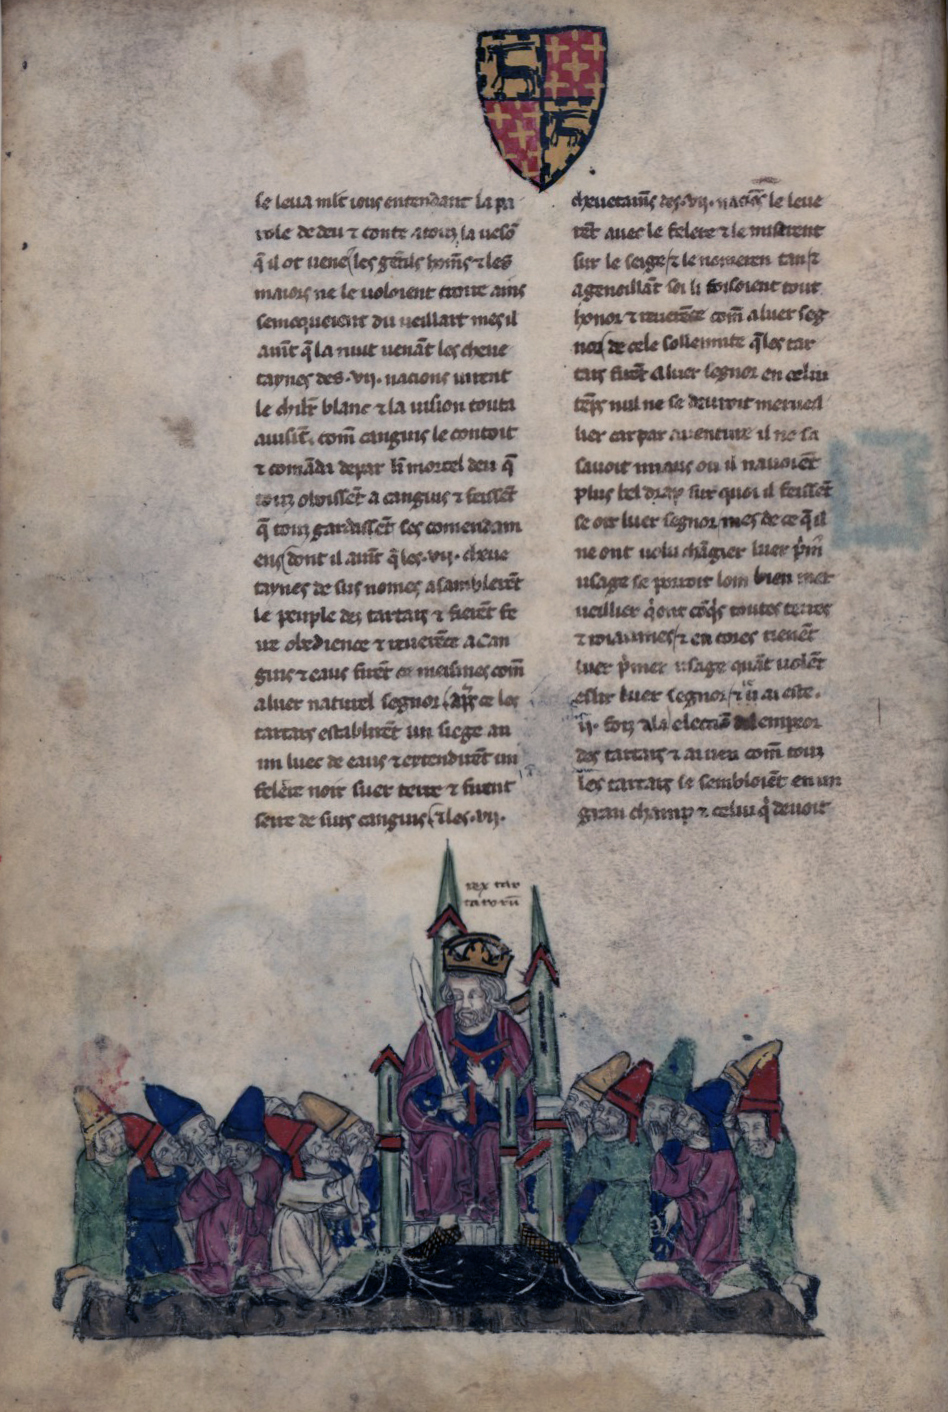 se leua mlt͛ ious entendant la pa
role de deu ⁊ conte a touz la uesõ
q̃ il ot ueue les gẽtils hom̃s ⁊ les
maiors ne le uoloient croire ains
semoqueient du ueillart mes il
auĩt q̃ la nuit uenãt les cheue
taynes des .vii. nacions uirent
le chil͛r blanc ⁊ la uision touta
auisĩt com̃ canguis le contoit
⁊ comãda depar lĩ mortel deu q̃
touz obeissẽt a canguis ⁊ feissẽt
q̃ touz gardassẽt ses comendam
ens dont il auĩt q̃ les .vii. cheue
taynes de sus nomes asamblerẽt
le peuple des tartars ⁊ firẽt fe
re obedience ⁊ reuerẽce a can
guis ⁊ eaus firẽt ce meismes com̃
a luer naturel segnor ap̃s ce les
tartars establirẽt un siege au
mi luec de eaus ⁊ estendirẽt un
felere noir suer terre ⁊ firent
seire de suis canguis ⁊ les .vii.
cheuetaiñs des .vii. naciõs le leue
rẽt auec le felere ⁊ le mistrent
sur le seige ⁊ le nomeren can ⁊
agenoillãt soi li foisoient tout
honor ⁊ reuerẽce com̃ a luer seg
nor de cele sollennite q̃ les tar
tars firẽt a luer segnor en celui
tẽps nul ne se deuroit merueil
lier car par auenture il ne sa
uoit miaus ou il nauoiẽt
plus bel drap sur quoi il feissẽt
se oir luer segnor mes de ce q̃ il
ne ont uolu chãgier luer p̃m
usage se porroit lom bien mer
ueillier q̃ ont cõq̃s toutes terres
⁊ roiaumes ⁊ en cores tienẽt
luer p̃mer usage quãt uolẽt
eslir luer segnor ⁊ ii ai este
.ii. foiz a la electiõ del empeor
des tartars ⁊ ai ueu com̃ touz
les tartars se sembloiẽt en un
gran champ ⁊ celui q̃ deuoit
rex tar
tarorũ